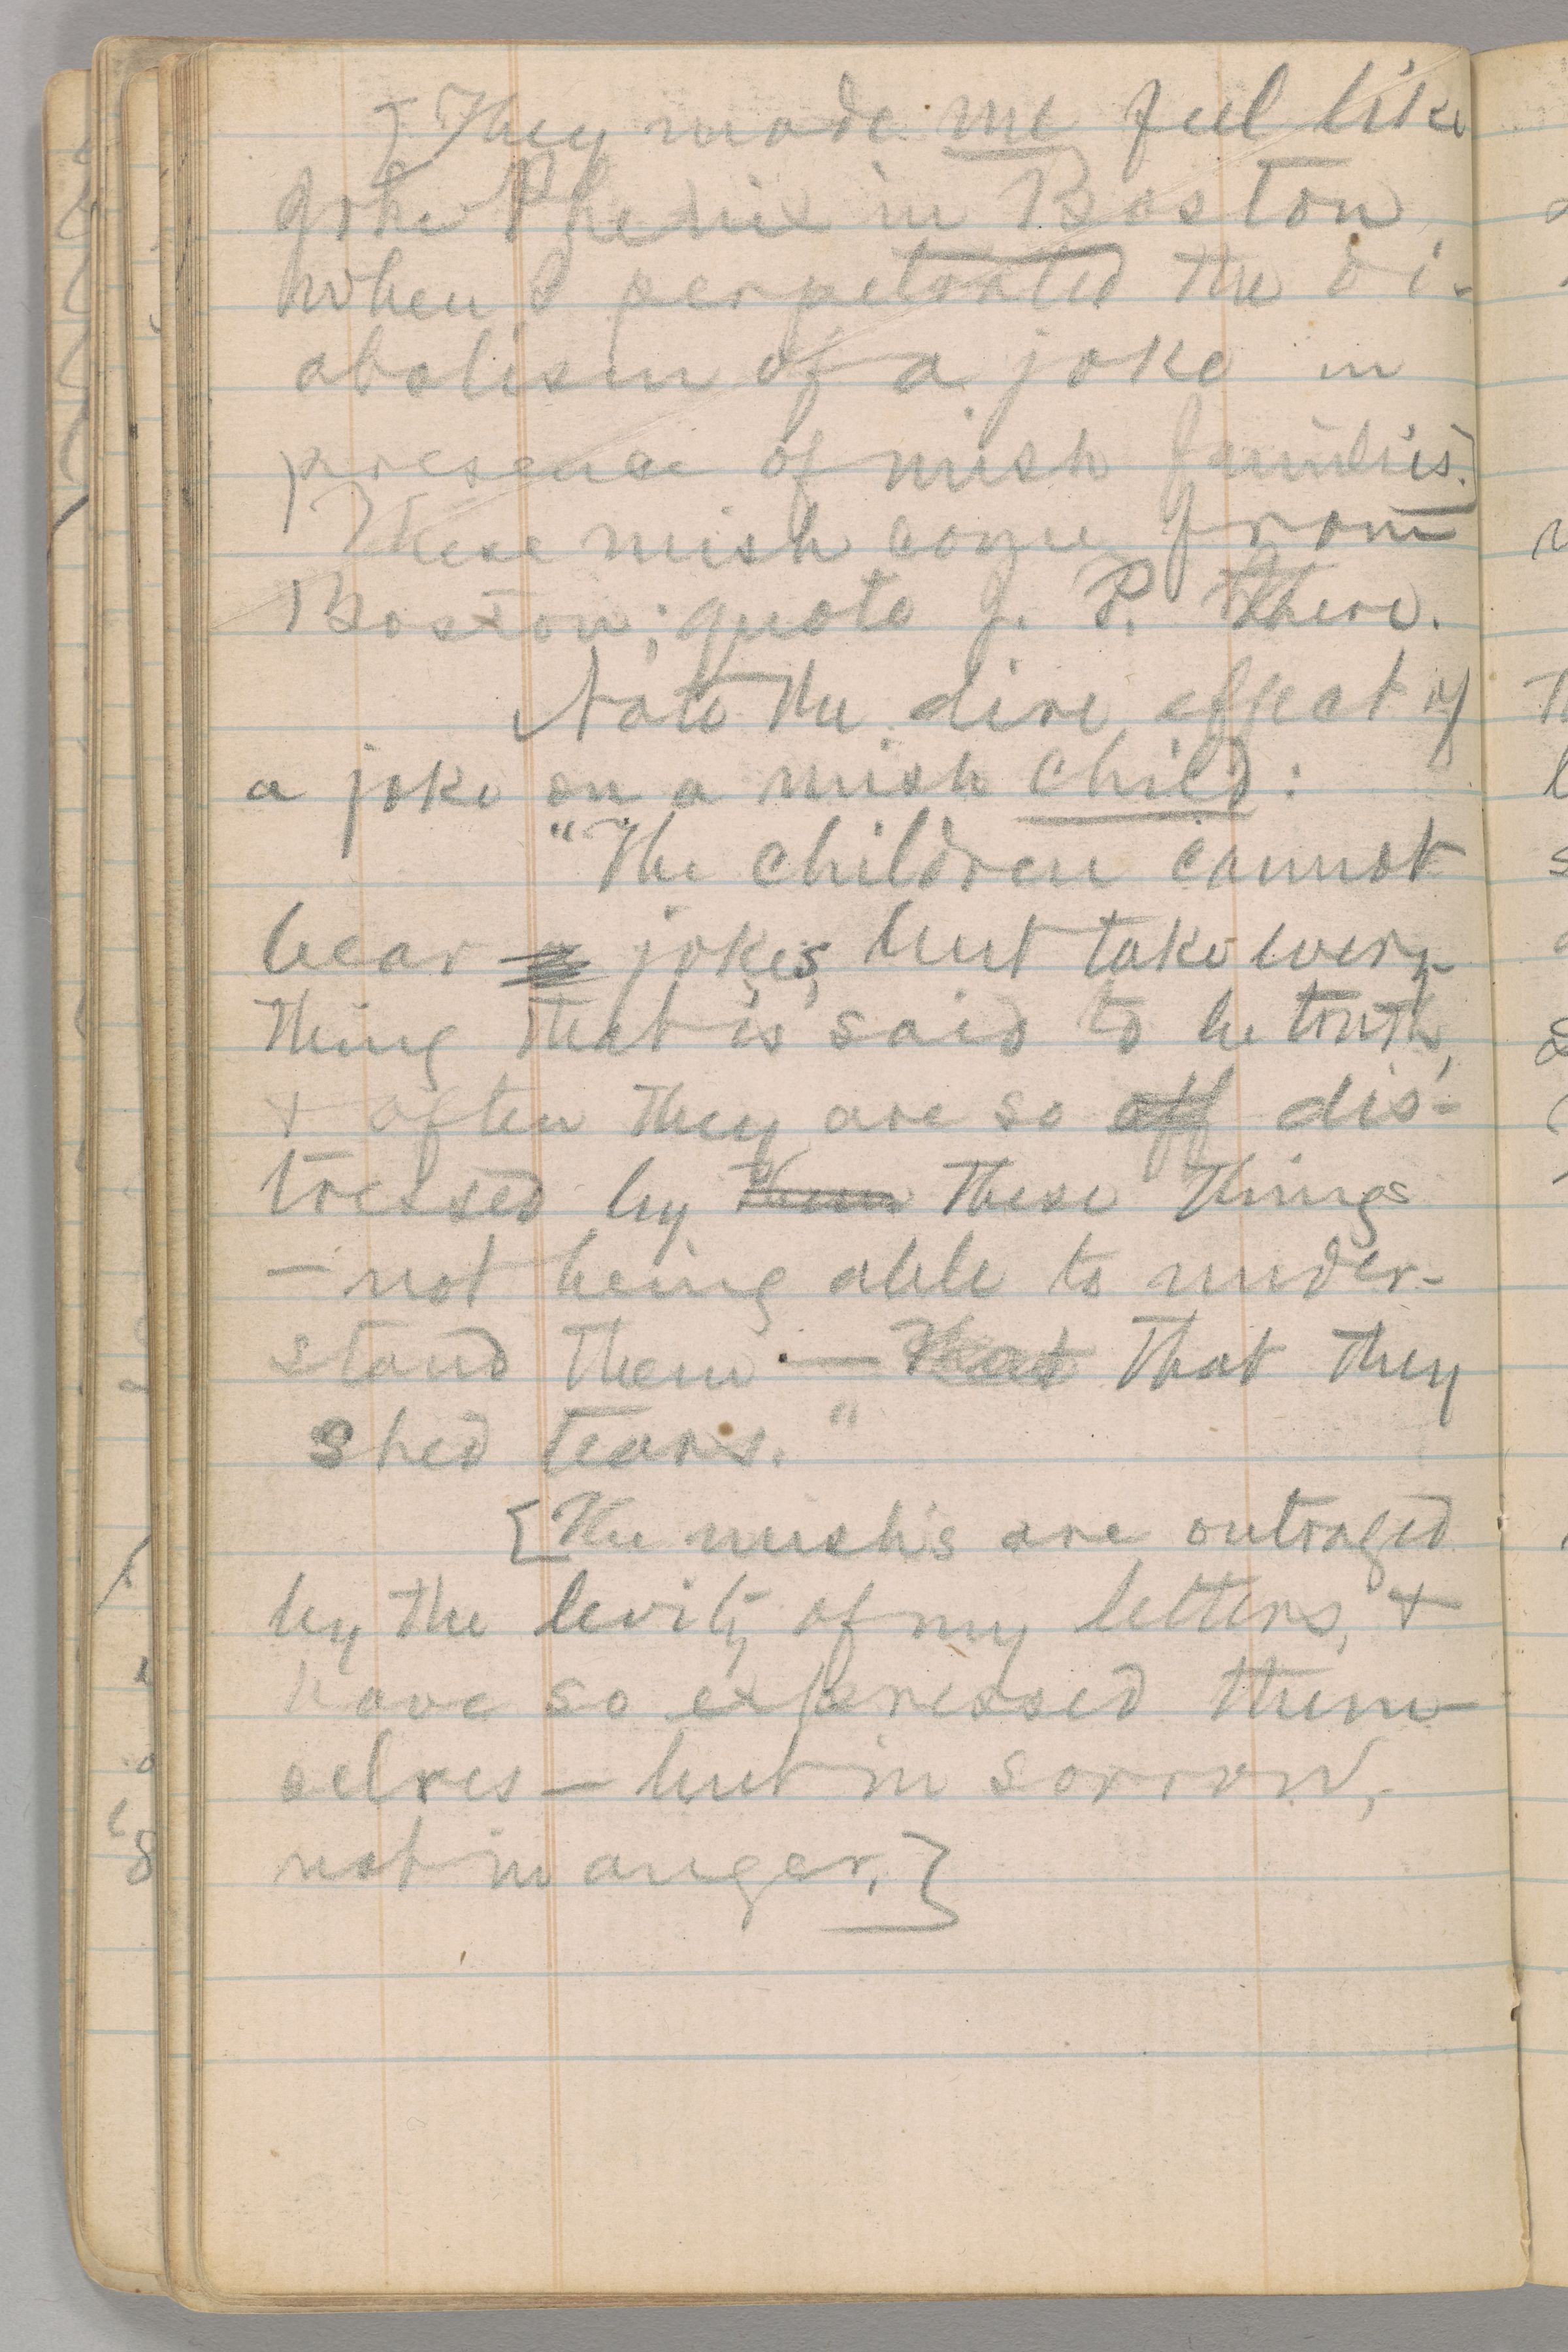 [They made me feel like
John Phenix in Boston
when I perpetrated the di-
abolism of a joke in
presence of mish families.]
These mish come from
Boston; quote J. P. there.
Note the dire effect of
a joke on a mish child:
"The children cannot
bear a jokes, but take every-
thing that is said to be truth,
& often they are so aff dis-
tressed by them these things
— not being able to under-
stand them — that that they
shed tears."
[The mish's are outraged
by the levity of my letters, &
have so expressed them-
selves — but in sorrow,
not in anger.]